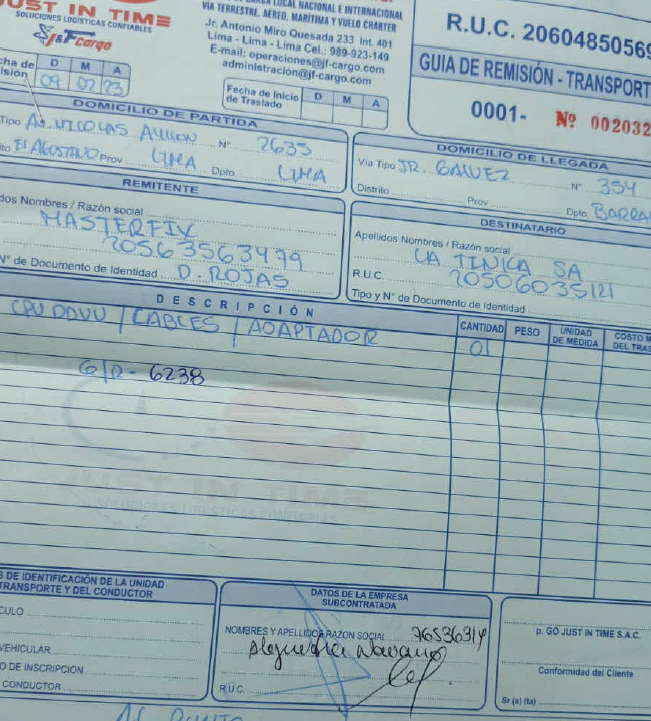 JUST IN TIME
SOLUCIONES LOGÍSTICAS CONFIABLES
J&F Cargo
CARGA LOCAL NACIONAL E INTERNACIONAL
VÍA TERRESTRE, AÉREO, MARÍTIMA Y VUELO CHARTER
Jr. Antonio Miro Quesada 233 Int. 401
Lima - Lima - Lima Cel.: 989-923-149
E-mail: operaciones@jf-cargo.com
administración@jf-cargo.com
R.U.C. 2060485056
GUIA DE REMISIÓN - TRANSPORT
0001- Nº 002032
cha de
isión
D M A
09 02 23
Fecha de Inicio
de Traslado
D M A
DOMICILIO DE PARTIDA
Tipo AV. NICOLAS AYLLON Nº 2633
ito El AGUSTINO Prov. LIMA Dpto. LIMA
DOMICILIO DE LLEGADA
Vía Tipo JR. GALVEZ Nº 354
Distrito Prov. Dpto. BARRA
REMITENTE
dos Nombres / Razón social
MASTERFIX
20563563479
Nº de Documento de Identidad D. ROJAS
DESTINATARIO
Apellidos Nombres / Razón social
LA TINICA SA
R.U.C. 20506035121
Tipo y Nº de Documento de Identidad
DESCRIPCIÓN CANTIDAD PESO UNIDAD DE MEDIDA COSTO M DEL TRAS
CPU DDVU / CABLES / ADAPTADOR 01
G/R - 6238
JUST IN TIME
SOLUCIONES LOGISTICAS CONFIABLES
S DE IDENTIFICACIÓN DE LA UNIDAD
TRANSPORTE Y DEL CONDUCTOR
CULO
VEHICULAR
O DE INSCRIPCION
CONDUCTOR
DATOS DE LA EMPRESA
SUBCONTRATADA
NOMBRES Y APELLIDOS RAZON SOCIAL 76536314
R.U.C.
p. GO JUST IN TIME S.A.C.
Conformidad del Cliente
Sr (a) (ta)